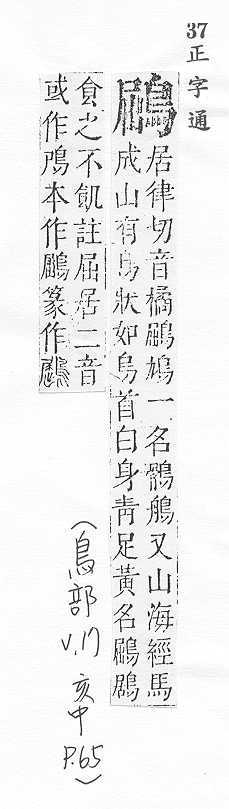 37
正字通
鶌
居律切音橘鶌鳩一名鶻鵃又山海經馬
成山有鳥狀如烏首白身青足黃名鶌鶋
食之不飢註屈居二音
或作本作篆作
(鳥部 V.17 亥中 P.65)